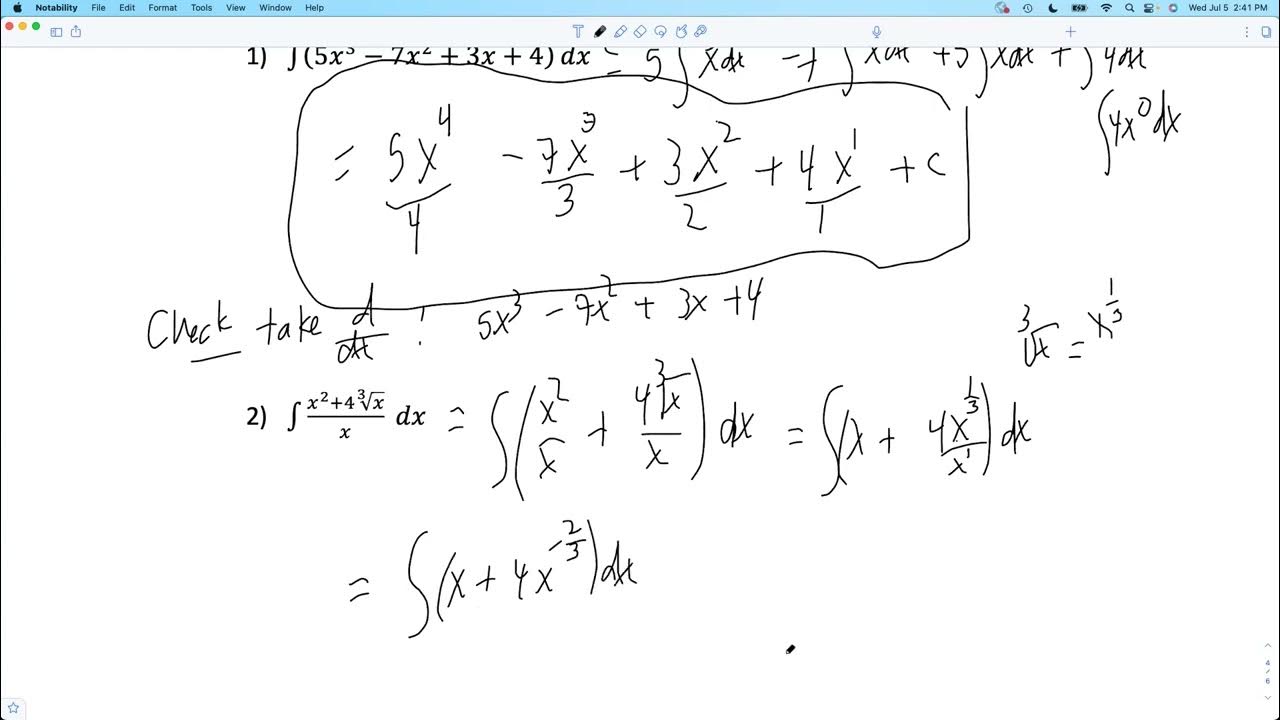 Notability File Edit Format Tools View Window Help Wed Jul 5 2:41 PM
1) ∫(5x³ − 7x² + 3x + 4) dx = 5∫x dx − 7∫x dx + 3∫x dx + ∫4dx
∫4x⁰dx
= 5x⁴/4 − 7x³/3 + 3x²/2 + 4x¹/1 + c
Check take d/dx : 5x³ − 7x² + 3x + 4
∛x = x^(1/3)
2) ∫ (x²+4∛x)/x dx = ∫(x²/x + 4∛x/x) dx = ∫(x + 4x^(1/3)/x¹) dx
= ∫(x + 4x^(−2/3)) dx
4
6